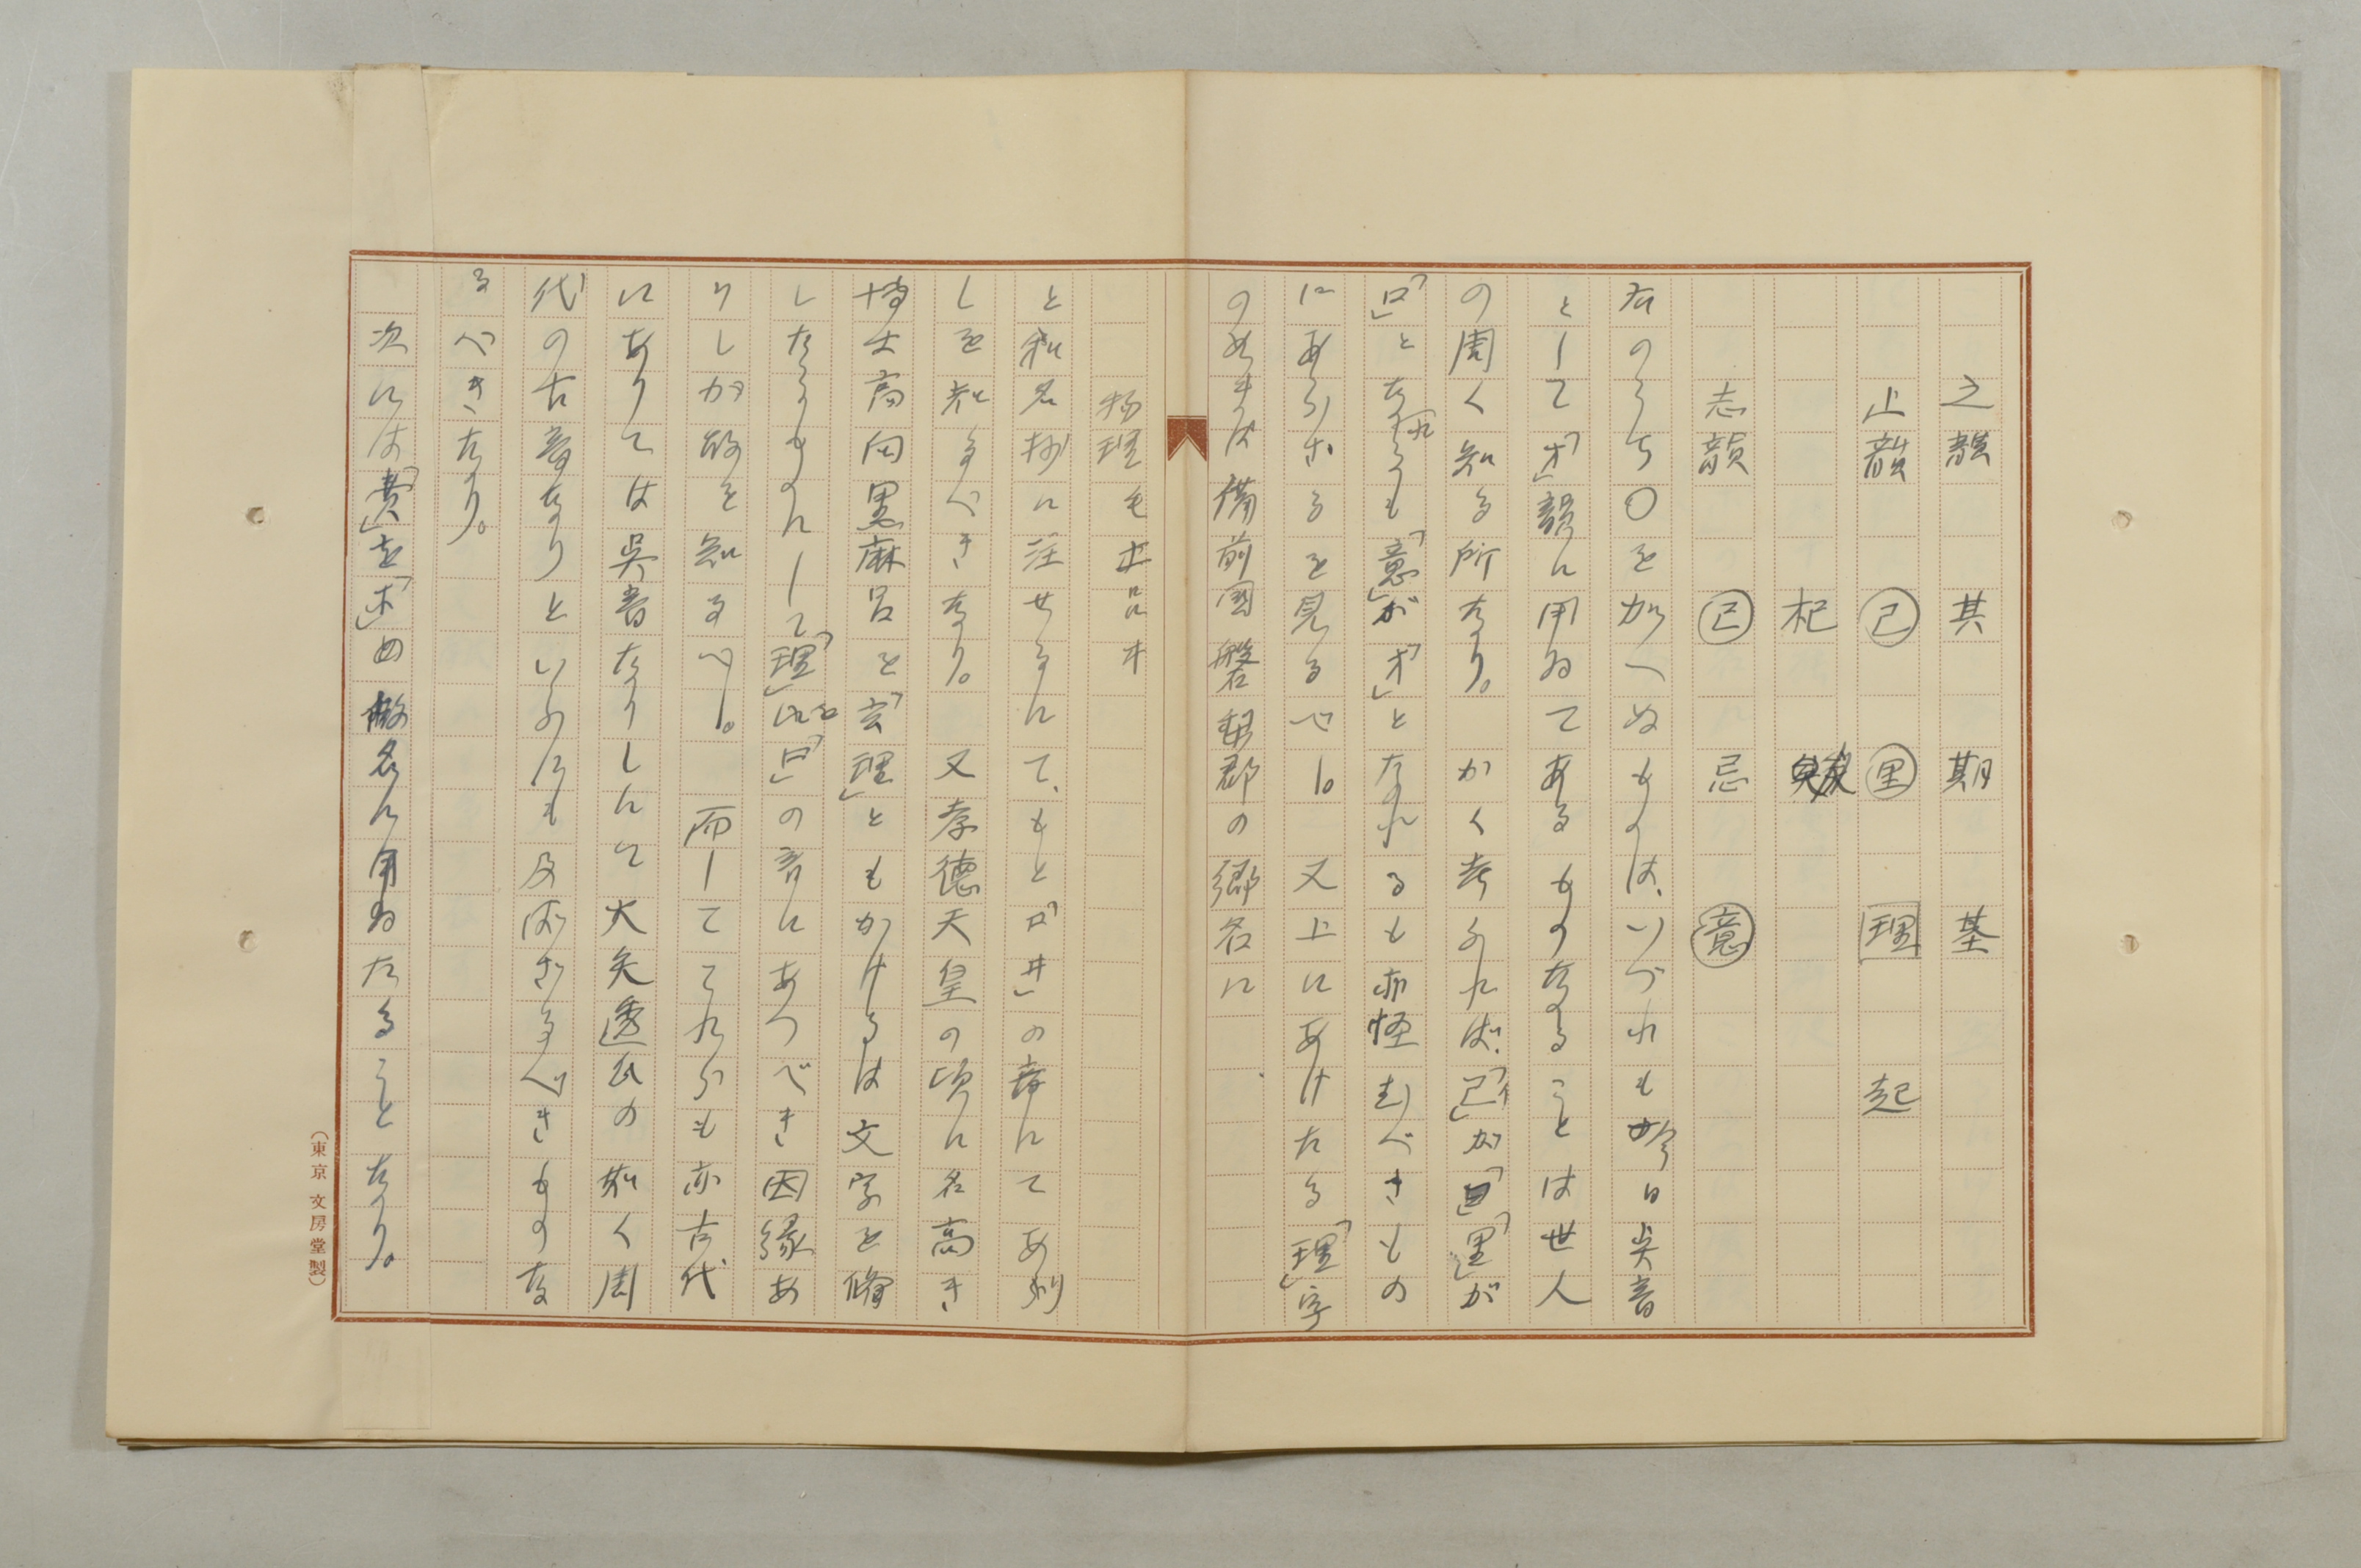 之韻 其 期 基
止韻 己 里 理 起
杞
志韻 已 忌 意
右のうち〇を加へぬものは、いづれも今日呉音
として「オ」韻に用ゐてあるものなることは世人
の周く知る所なり。かく考ふれば、「己」が「里」が
「ロ」となれるも「意」が「オ」となれるも亦怪むべきもの
にあらざるを見るべし。又上にあげたる「理」字
のあれば備前国磐梨郡の郷名に
物理毛止呂井
と和名抄に注せるにて、もと「ロ井」の音にてあり
しを知るべきなり。又孝徳天皇の頃に名高き
博士高向黒麻呂を「玄理」ともかけるは文字を脩
したるものにして「理」「ロ」の音にあつべき因縁あ
りしが故を知るべし。而してこれらも亦古代
にありては呉音なりしにて大矢透氏の 夙く周
代の古音なりといふにも及ばざるべきものな
るべきなり。
次には「費」を「ホ」の假名に用ゐたることなり。
（東京 文房堂製）